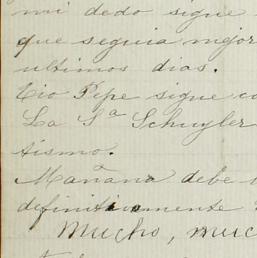 mi dedo sigue
que seguia mejor
ultimos dias.
Tio Pepe sigue co
La Sª Schuyler
tismo.
Mañana debe
definitivamente
Mucho, muc